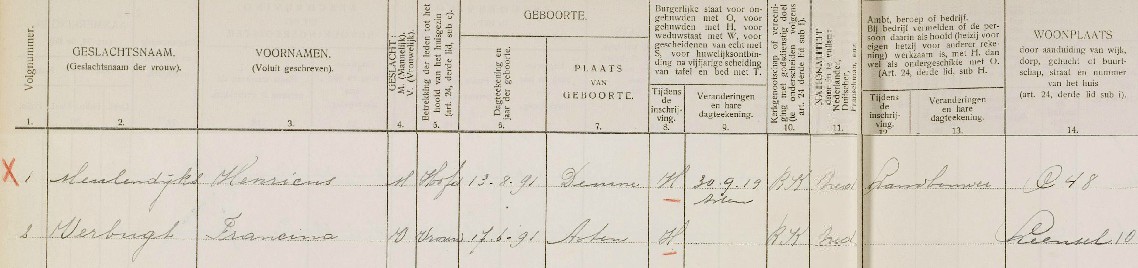 Volgnummer.
GESLACHTSNAAM.
(Geslachtsnaam der vrouw).
VOORNAMEN.
(Voluit geschreven).
GESLACHT:
M. (Mannelijk).
V. (Vrouwelijk).
Betrekking der leden tot het
hoofd van het huisgezin
(art. 24, derde lid, sub c).
GEBOORTE.
Dagteekening en
jaar der geboorte.
PLAATS
VAN
GEBOORTE.
Burgerlijke staat voor on-
gehuwden met O, voor
gehuwden met H, voor
weduwstaat met W, voor
gescheidenen van echt met
S, voor huwelijksontbin-
ding na vijfjarige scheiding
van tafel en bed met T.
Tijdens
de
inschrij-
ving.
Veranderingen
en hare
dagteekening.
Kerkgenootschap of vereeni-
ging met godsdienstig doel
(te onderscheiden volgens
art. 24 derde lid sub f).
NATIONALITEIT
door in te vullen:
Nederlander,
Duitscher,
Franschman, enz.
Ambt, beroep of bedrijf.
Bij bedrijf vermelden of de per-
soon daarin als hoofd (hetzij voor
eigen hetzij voor anderer reke-
ning) werkzaam is, met H. dan
wel als ondergeschikte met O.
(Art. 24, derde lid, sub H.
Tijdens
de
inschrij-
ving.
Veranderingen
en hare
dagteekening.
WOONPLAATS
door aanduiding van wijk,
dorp, gehucht of buurt-
schap, straat en nummer
van het huis
(art. 24, derde lid sub i).
1. 2. 3. 4. 5. 6. 7. 8. 9. 10. 11. 12 13. 14.
X 1 Meulendijks Henricus M Hoofd 13-8-91 Deurne H 30.9.19 R K Ned Landbouwer C 48
Asten
2 Verbugt Francina V Vrouw 17-6-91 Asten H R K Ned Leensel 10